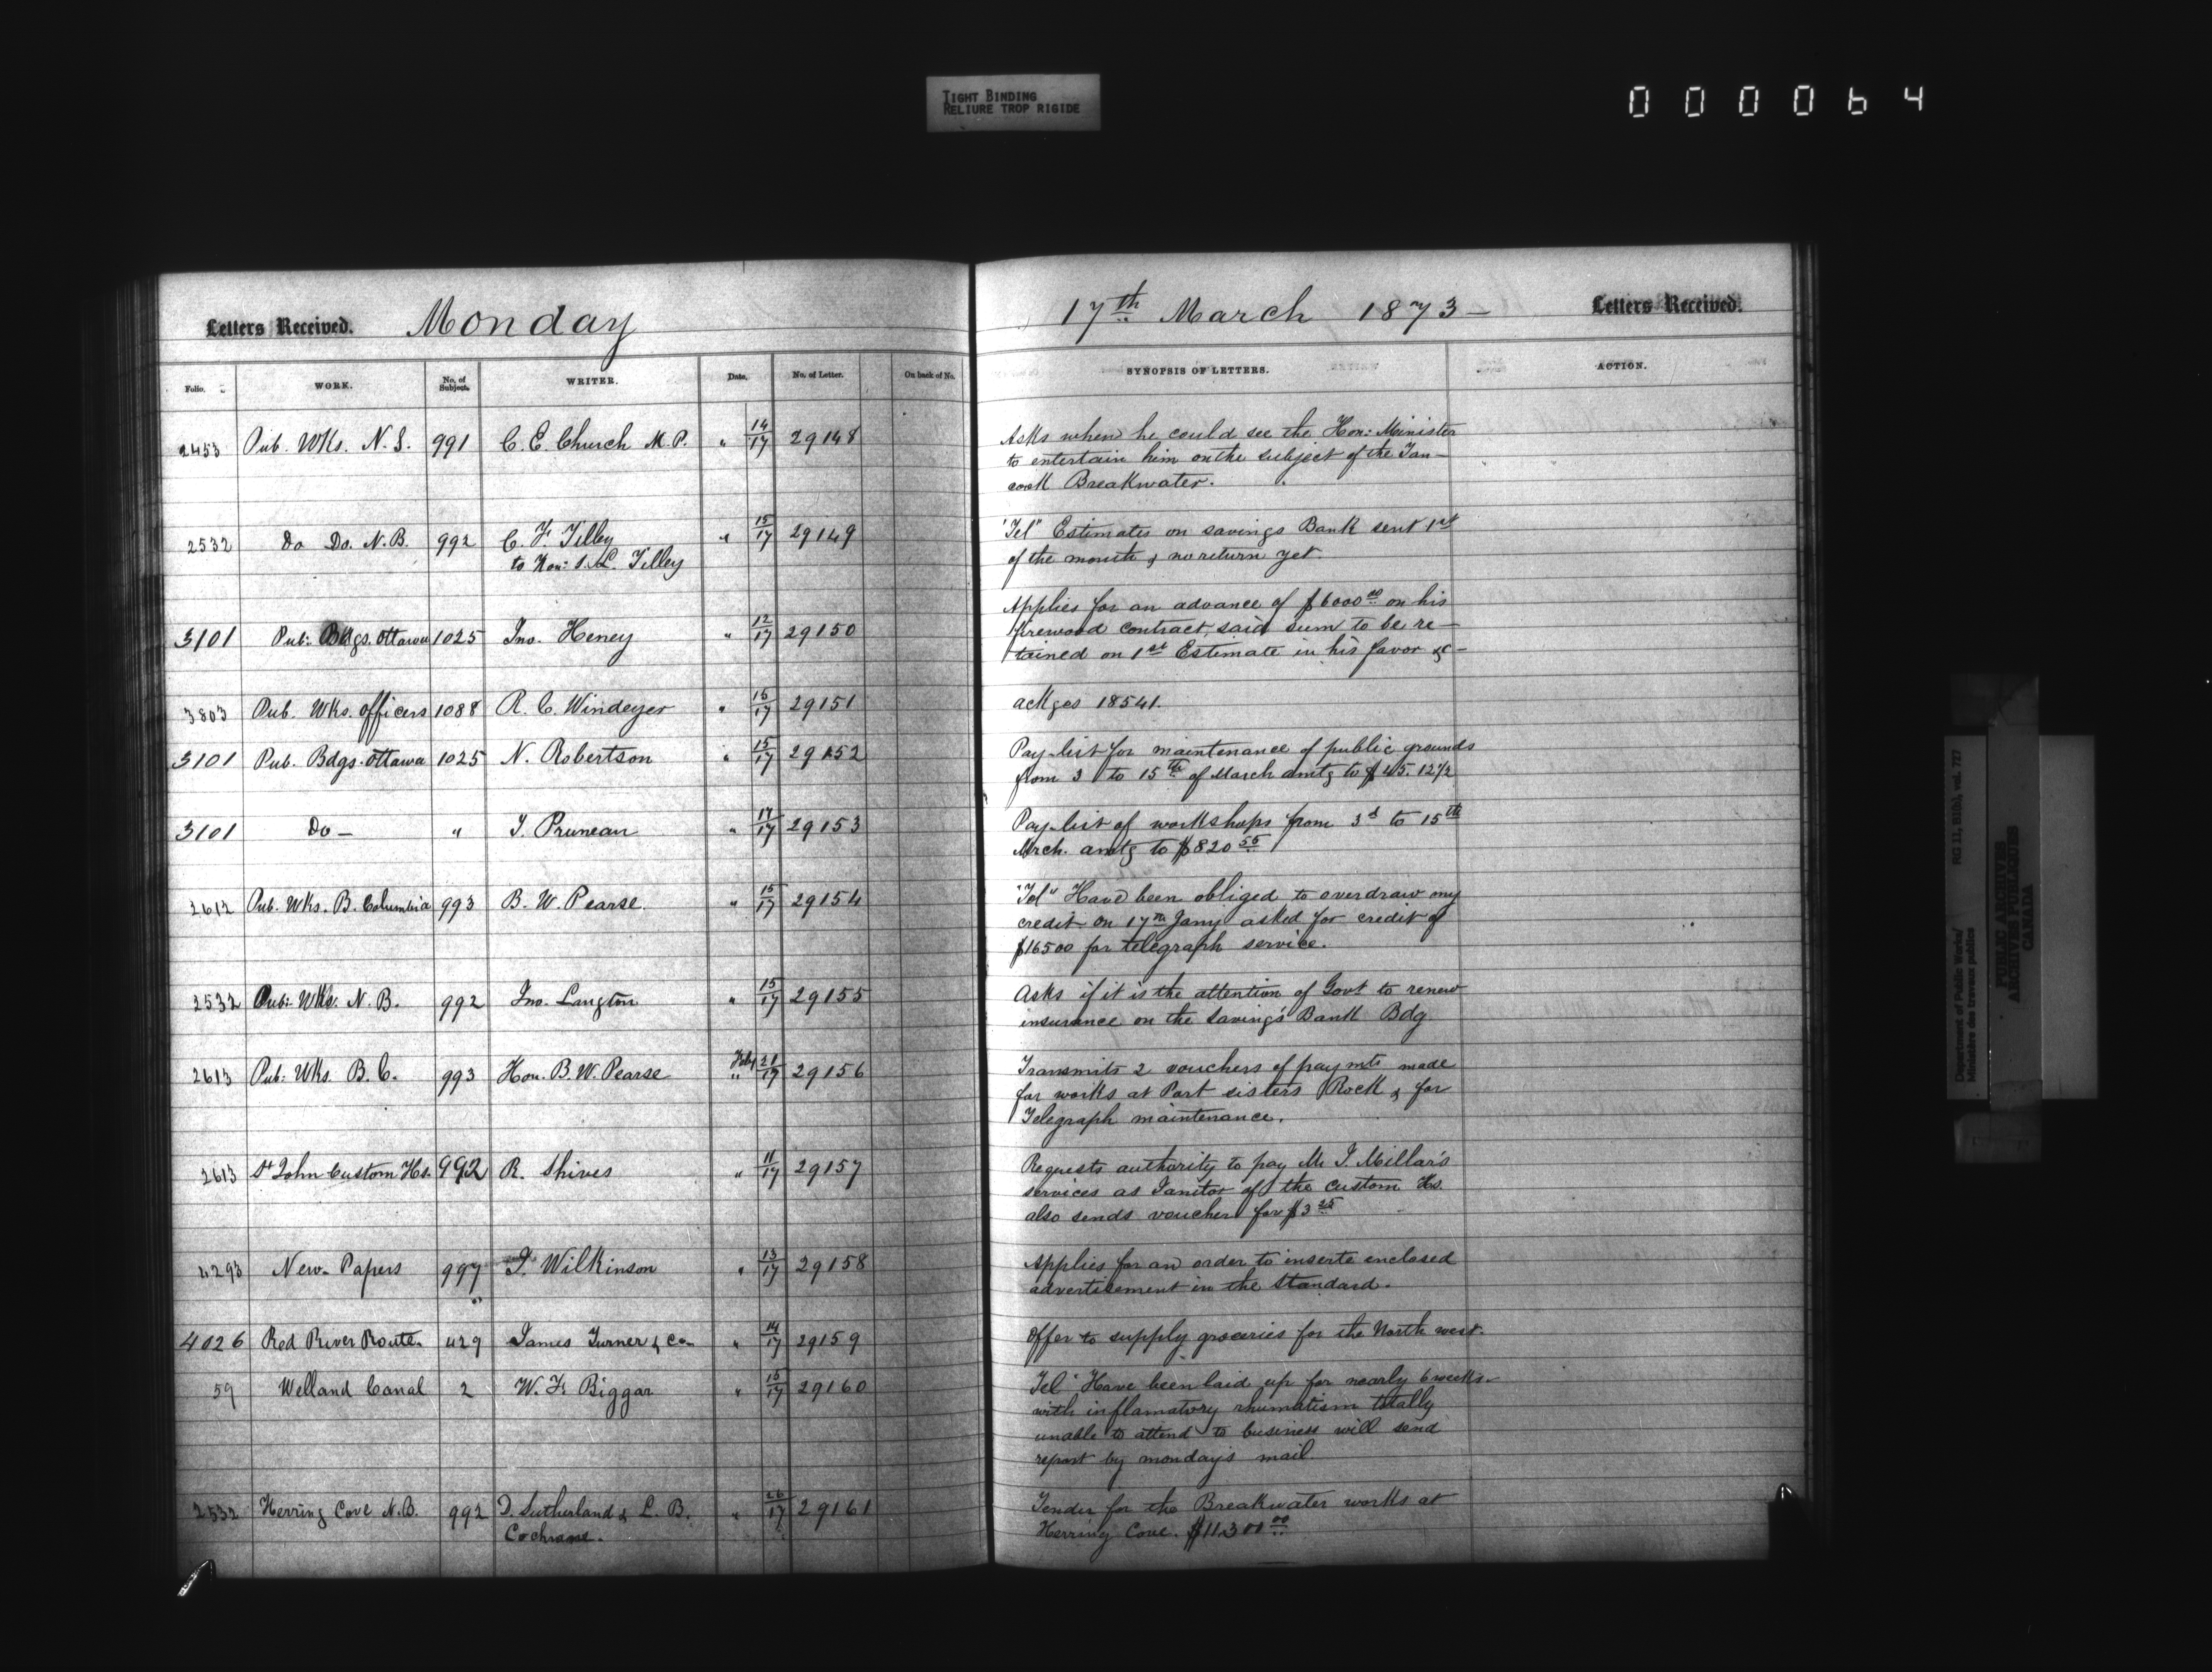 TIGHT BINDING
RELIURE TROP RIGIDE
000064
Letters Received. Monday
17th March 1873 — Letters Received.
Folio. WORK. No. of Subject. WRITER. Date. No. of Letter. On back of No. SYNOPSIS OF LETTERS. ACTION.
2453 Pub. Wks. N.S. 991 C. E. Church M.P. " 14/17 29148 Asks when he could see the Hon: Minister
to entertain him on the subject of the Tan-
cook Breakwater.
2532 Do Do. N.B. 992 C. F. Tilley " 15/17 29149 "Tel" Estimates on savings Bank sent 1st
to Hon: S. L. Tilley of the month & no return yet.
Applies for an advance of $6000 00 on his
3101 Pub: Bdgs. Ottawa 1025 Jno. Heney " 12/17 29150 firewood contract, said sum to be re-
tained on 1st Estimate in his favor &c-
3803 Pub. Wks. officers 1088 R. C. Windeyer " 15/17 29151 ackges 18541.
3101 Pub. Bdgs. Ottawa 1025 N. Robertson " 15/17 29152 Pay-list for maintenance of public grounds
from 3 to 15th of March amtg to $45. 12½
3101 Do — " J. Pruneau " 17/17 29153 Pay-list of workshops from 3d to 15th
Mrch. amtg to $820 55
2612 Pub. Wks. B. Columbia 993 B. W. Pearse. " 15/17 29154 "Tel" Have been obliged to overdraw my
credit on 17th Jany asked for credit of
$16500 for telegraph service.
2532 Pub: Wks. N.B. 992 Jno. Langton " 15/17 29155 Asks if it is the attention of Govt to renew
insurance on the Saving's Bank Bdg
2613 Pub: Wks. B.C. 993 Hon. B. W. Pearse Feby 21/17 " 29156 Transmits 2 vouchers of paymts made
for works at Port sisters Rock & for
Telegraph maintenance.
2613 St John Custom Hs. 992 R. Shives " 11/17 29157 Requests authority to pay Mr J. Millar's
services as Janitor of the Custom Hs.
also sends voucher for $3 25
4293 New-Papers 997 J. Wilkinson " 13/17 29158 Applies for an order to inserte enclosed
advertisement in the Standard.
4026 Red River Route. 429 James Turner & Co— " 14/17 29159 Offer to supply groceries for the North west.
59 Welland Canal 2 W. F. Biggar " 15/17 29160 Tel" Have been laid up for nearly 6 weeks-
with inflamatory rhumatism totally
unable to attend to business will send
report by monday's mail
2532 Herring Cove N.B. 992 D. Sutherland & L. B. " 26/17 29161 Tender for the Breakwater works at
Cochrane. Herring Cove. $11300 00
Department of Public Works/ RG 11, B1(b), vol. 727
Ministère des travaux publics
PUBLIC ARCHIVES
ARCHIVES PUBLIQUES
CANADA